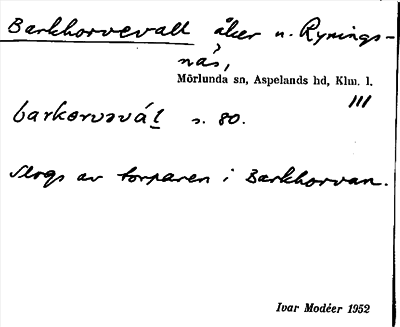 Barkhorvevall åker n. Rynings-
näs,
Mörlunda sn, Aspelands hd, Klm. l.
III
barkorvavál s. 80.
Slogs av torparen i Barkhorvan.
Ivar Modéer 1952